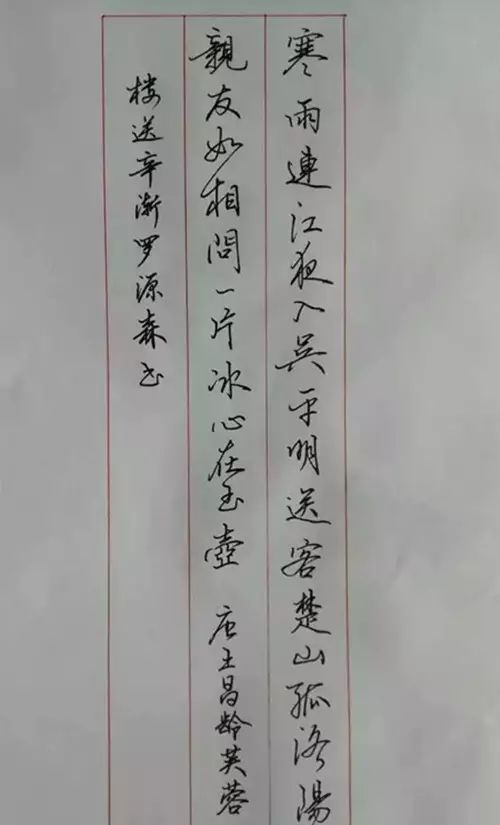 寒雨連江夜入吳平明送客楚山孤洛陽
親友如相問一片冰心在玉壺 唐王昌龄芙蓉
楼送辛渐罗源森书